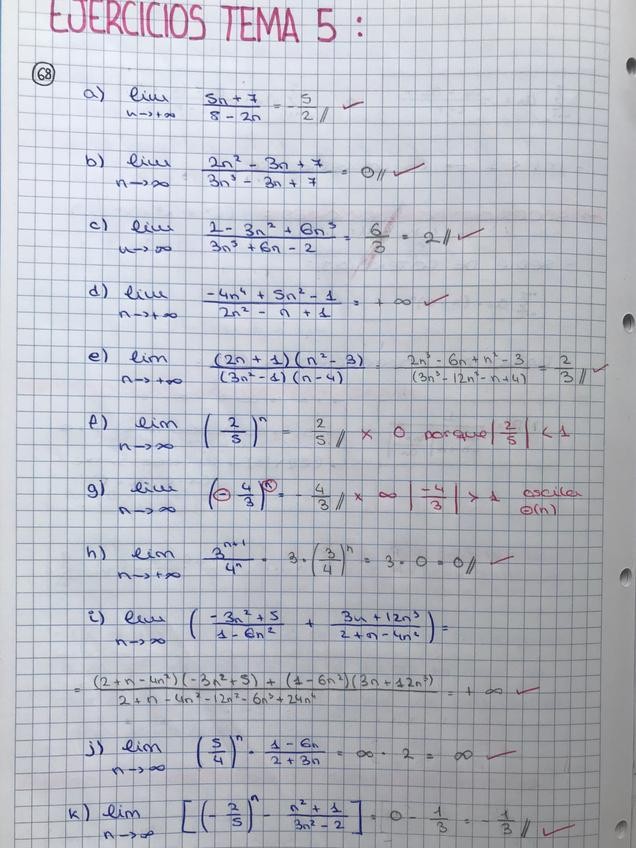 EJERCICIOS TEMA 5 :
68
a) lim n→+∞ (5n + 7)/(8 - 2n) = - 5/2 // ✓
b) lim n→∞ (2n² - 3n + 7)/(3n³ - 3n + 7) = 0 // ✓
c) lim n→∞ (2 - 3n² + 6n³)/(3n³ + 6n - 2) = 6/3 = 2 // ✓
d) lim n→+∞ (-4n⁴ + 5n² - 1)/(2n² - n + 1) = + ∞ ✓
e) lim n→+∞ (2n + 1)(n² - 3)/(3n² - 1)(n - 4) = (2n³ - 6n + n² - 3)/(3n³ - 12n² - n + 4) = 2/3 // ✓
f) lim n→∞ (2/5)ⁿ = 2/5 // × 0 porque |2/5| < 1
g) lim n→∞ (- 4/3)ⁿ = - 4/3 // × ∞ |-4/3| > 1 oscila ⊖(n)
h) lim n→+∞ 3ⁿ⁺¹/4ⁿ = 3 · (3/4)ⁿ = 3 · 0 = 0 // ✓
i) lim n→∞ ((-3n² + 5)/(1 - 6n²) + (3n + 12n³)/(2 + n - 4n²)) =
= ((2 + n - 4n²)(-3n² + 5) + (1 - 6n²)(3n + 12n³))/(2 + n - 4n² - 12n² - 6n³ + 24n⁴) = + ∞ ✓
j) lim n→∞ (5/4)ⁿ · (1 - 6n)/(2 + 3n) = ∞ · 2 = ∞ ✓
k) lim n→∞ [(- 2/5)ⁿ - (n² + 1)/(3n² - 2)] = 0 - 1/3 = - 1/3 // ✓